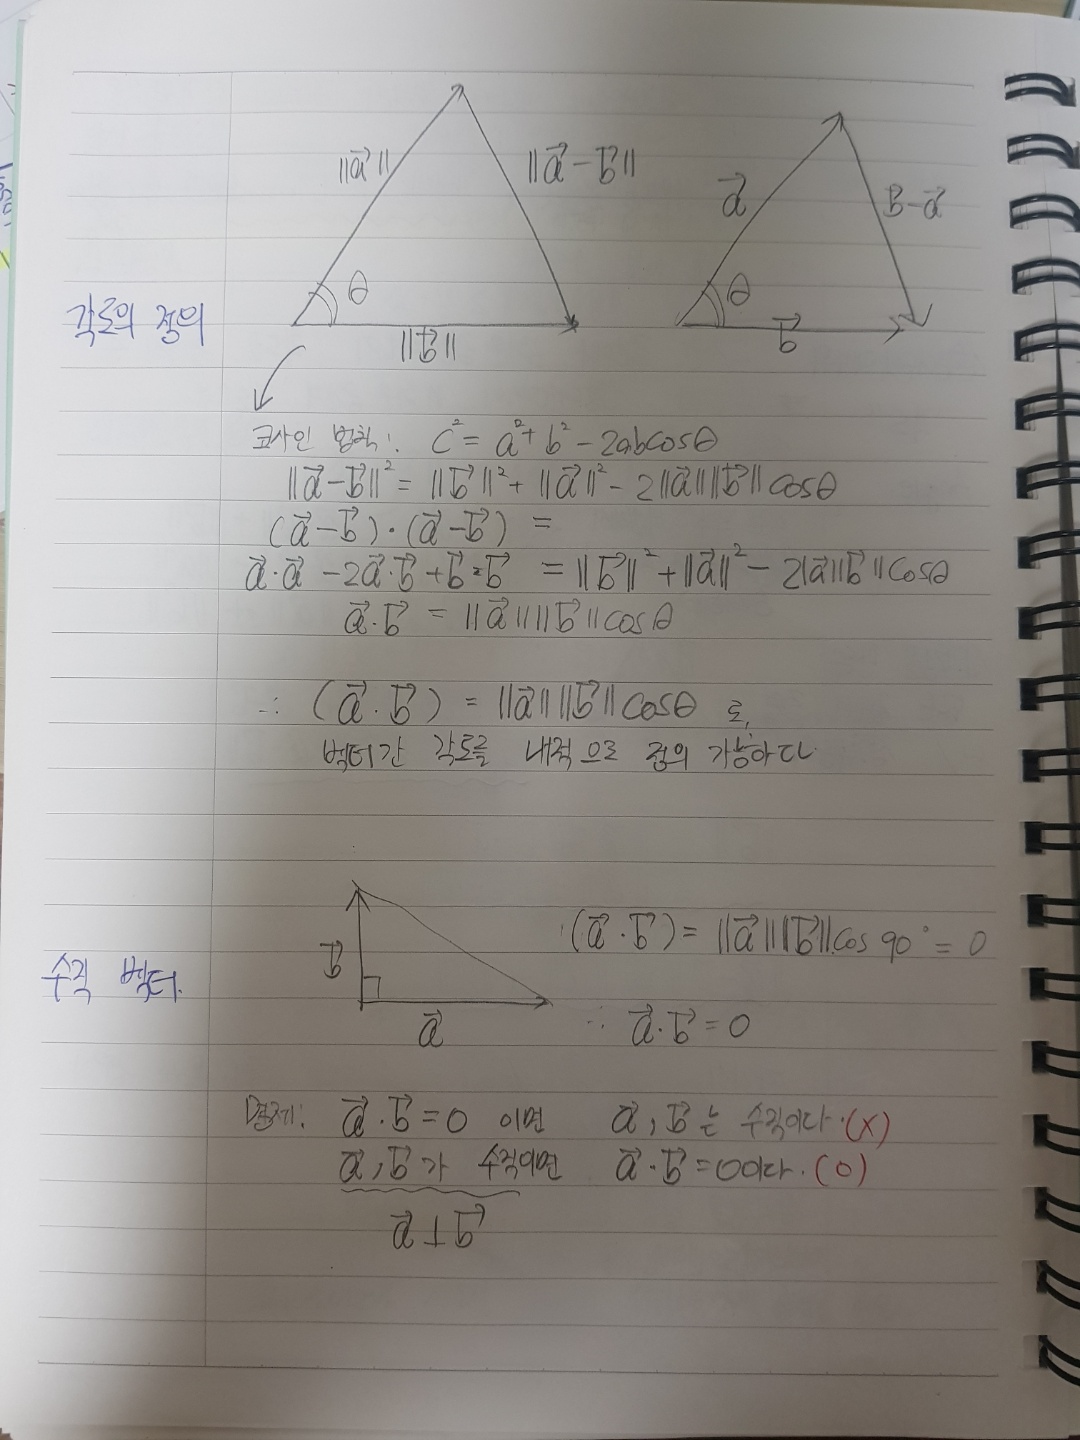 ||a⃗|| ||a⃗ - b⃗|| a⃗ b⃗-a⃗
θ θ
각도의 정의
||b⃗|| b⃗
코사인 법칙: c² = a² + b² - 2abcosθ
||a⃗ - b⃗||² = ||b⃗||² + ||a⃗||² - 2||a⃗|| ||b⃗|| cosθ
(a⃗ - b⃗)·(a⃗ - b⃗) =
a⃗·a⃗ - 2a⃗·b⃗ + b⃗·b⃗ = ||b⃗||² + ||a⃗||² - 2|a⃗||b⃗|| cosθ
a⃗·b⃗ = ||a⃗|| ||b⃗|| cosθ
∴ (a⃗·b⃗) = ||a⃗|| ||b⃗|| cosθ 로,
벡터간 각도를 내적으로 정의 가능하다.
(a⃗·b⃗) = ||a⃗|| ||b⃗|| cos 90° = 0
수직 벡터.
b⃗
a⃗ ∴ a⃗·b⃗ = 0
명제: a⃗·b⃗ = 0 이면 a⃗, b⃗는 수직이다. (X)
a⃗, b⃗가 수직이면 a⃗·b⃗ = 0이다. (O)
a⃗ ⊥ b⃗